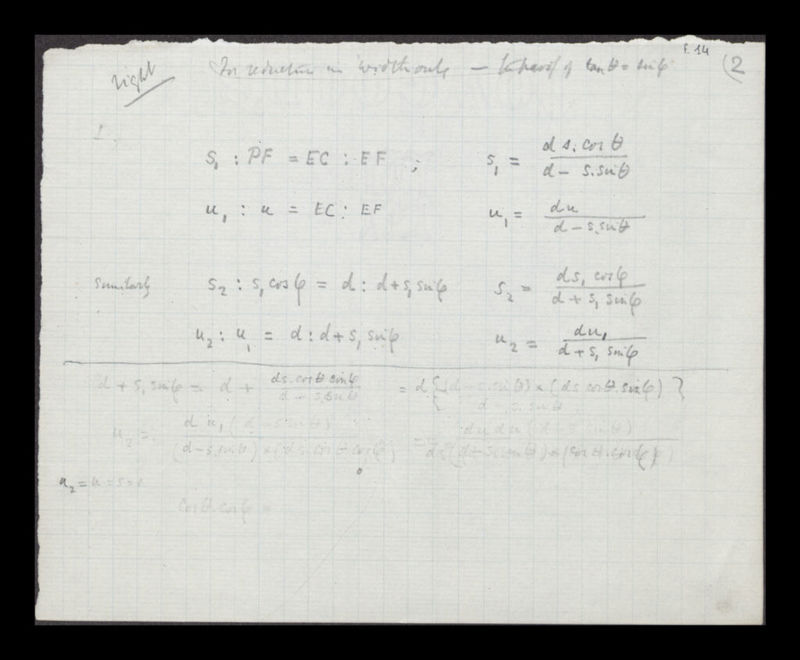 f. 14
right For reduction in width only — tanθ = sinφ (2
I.
s₁ : PF = EC : EF ; s₁ = d s. cosθ / d – s. sinθ
u₁ : u = EC : EF u₁ = du / d – s. sinθ
Similarly s₂ : s₁ cosφ = d : d + s₁ sinφ s₂ = ds₁ cosφ / d + s₁ sinφ
u₂ : u₁ = d : d + s₁ sinφ u₂ = du₁ / d + s₁ sinφ
d + s₁ sinφ = d + ds. cosθ sinφ / d – s. sinθ = d { (d – s. sinθ) × (ds cosθ. sinφ) } / d – s. sinθ
u₂ = d u₁ (d – s sinθ) / (d – s. sinθ) × (ds. cosθ cosφ)
u₂ = u = s =
cosθ. cosφ =